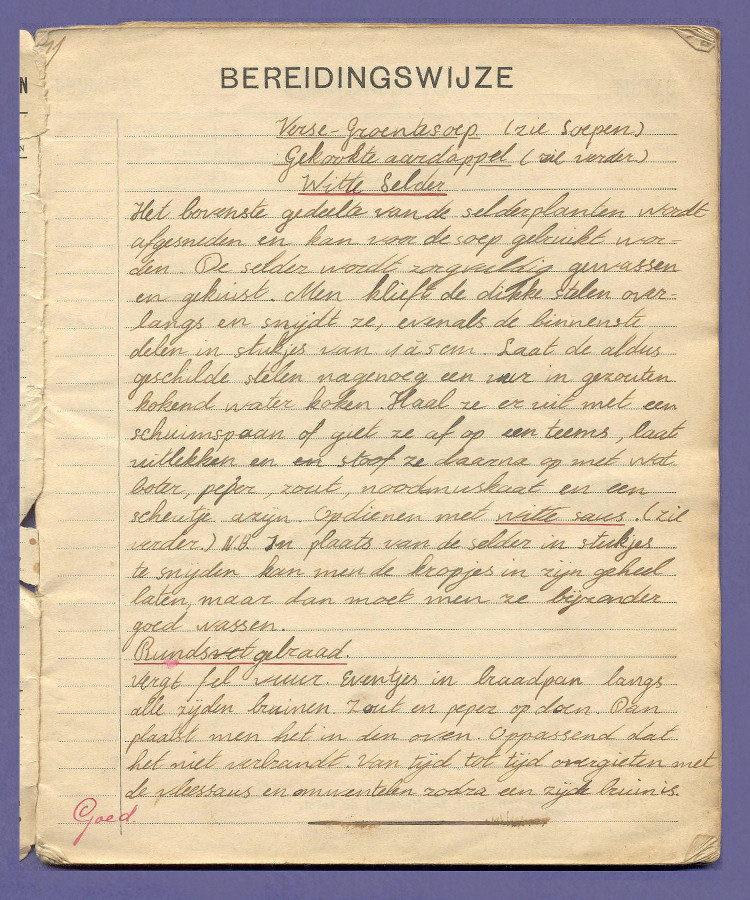 BEREIDINGSWIJZE
Verse-Groentesoep (zie Soepen)
Gekookte aardappel (zie verder)
Witte Selder
Het bovenste gedeelte van de selderplanten wordt
afgesneden en kan voor de soep gebruikt wor-
den. De selder wordt zorgvuldig gewassen
en gekuist. Men klieft de dikke stelen over-
langs en snijdt ze, evenals de binnenste
delen in stukjes van 4 à 5 cm. Laat de aldus
geschilde stelen nagenoeg een uur in gezouten
kokend water koken Haal ze er uit met een
schuimspaan of giet ze af op een teems, laat
uitlekken en en stoof ze daarna op met wat
boter, peper, zout, nootmuskaat en een
scheutje azijn. Opdienen met witte saus. (zie
verder) N.B. In plaats van de selder in stukjes
te snijden kan men de kropjes in zijn geheel
laten, maar dan moet men ze bijzonder
goed wassen.
Rundsgebraad.
Vergt fel vuur. Eventjes in braadpan langs
alle zijden bruinen Zout en peper op doen. Dan
plaatst men het in den oven. Oppassend dat
het niet verbrandt. Van tijd tot tijd overgieten met
de vleessaus en omwentelen zodra een zijde bruin is.
Goed